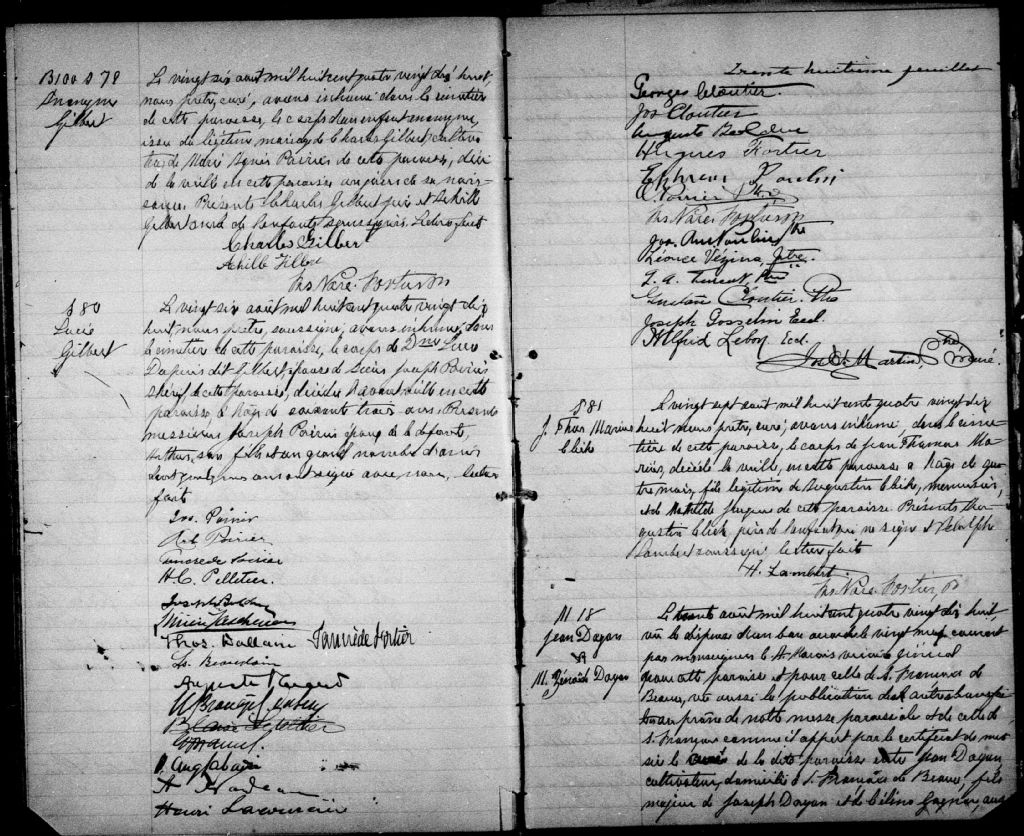 B100 S 79
Anonyme
Gilbert
Le vingt six août mil huit cent quatre vingt dix huit
nous prêtre, curé, avons inhumé dans le cimetière
de cette paroisse, le corps d'un enfant anonyme,
issu du légitime mariage de Charles Gilbert, cultiva
teur, & de Marie Agnès Poirier de cette paroisse, décé
dé la veille en cette paroisse au jour de sa nais-
sance. Présents Charles Gilbert père et Achille
Gilbert de l'enfant soussignés. Lecture faite
Charles Gilbert
Achille Gilbert
Jos Narc. Fortier
S 80
Lucie
Gilbert
Le vingt six août mil huit cent quatre vingt dix
huit, nous prêtre, soussigné, avons inhumé dans
le cimetière de cette paroisse, le corps de Dme Luce
Dupuis dit Gilbert, épouse de Joseph Poirier
shérif de cette paroisse, décédée en cette
paroisse à l'âge de soixante trois ans. Présents
messieurs Joseph Poirier époux de la défunte,
Arthur, son fils & un grand nombre d'amis
dont quelques uns ont signé avec nous. Lecture
faite
Jos. Poirier
Poirier
Tancrède Poirier
H. C. Pelletier
Joseph
Thos. Tancrède Fortier
Ls. Beaudoin
Auguste
Blaise Letellier
A. Nadeau
Henri
Trente huitième feuillet
Georges Cloutier
Jos Cloutier
Auguste
Hugues Fortier
Ephrem Poulin
O. Poirier Ptre
Jos Narc. Fortier
Jos. Poulin Ptre
Léonce Vézina, Ptre.
Gustave Cloutier. Ptre
Joseph Gosselin Eccl.
Alfred Lebon Eccl.
Martin, Ptre Curé.
S 81
J. Thos Marius
Bleik
Le vingt sept août mil huit cent quatre vingt dix
huit nous prêtre, curé, avons inhumé, dans le cime
tière de cette paroisse, le corps de Jean Thomas Ma
rius, décédé la veille, en cette paroisse à l'âge de qua
tre mois, fils légitime de Augustin Bleik, menuisier,
et de Mathilde de cette paroisse. Présents Au
gustin Bleik, père de l'enfant qui ne signe et Adolphe
Lambert soussigné. Lecture faite
H. Lambert
Jos Narc. Fortier Ptre
M 18
Jean Doyon
&
M. Zénaïde Doyon
Le trente août mil huit cent quatre vingt dix huit,
vu la dispense d'un ban accordée le vingt neuf courant
par monseigneur C. A. Marois vicaire général
pour cette paroisse et pour celle de S. François de
Beauce, vu aussi la publication des autres bans fai
te au prône de notre messe paroissiale et de celle de
S. François comme il appert par le certificat de mes
sire le curé de la dite paroisse entre Jean Doyon
cultivateur, domicilié à S. François de Beauce, fils
majeur de Joseph Doyon et de Célina